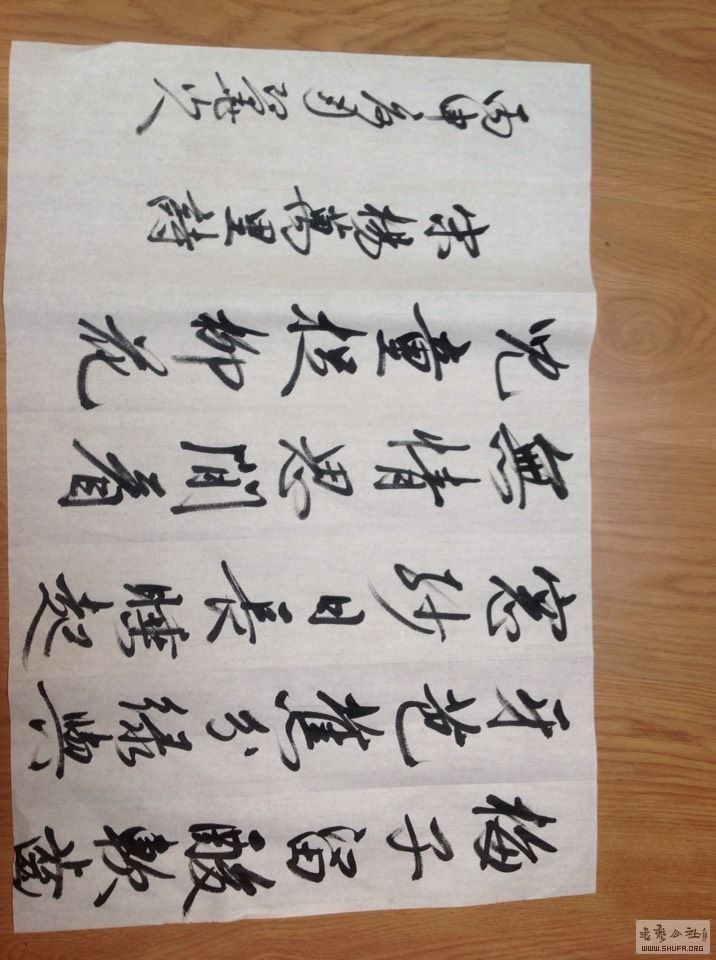 梅子留酸軟齒
牙芭蕉分綠與
窻紗日長睡起
無情思間看
兒童捉柳花
宋楊萬里詩
丙申
WWW.SHUFA.ORG